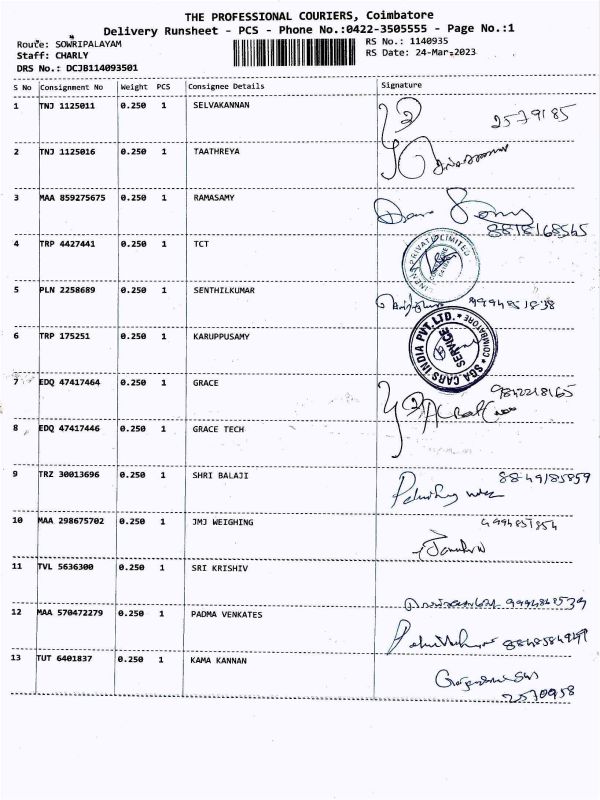 THE PROFESSIONAL COURIERS, Coimbatore
Delivery Runsheet - PCS - Phone No.:0422-3505555 - Page No.:1
Route: SOWRIPALAYAM
Staff: CHARLY
DRS No.: DCJB114093501
RS No.: 1140935
RS Date: 24-Mar-2023
S No Consignment No Weight PCS Consignee Details Signature
1 TNJ 1125011 0.250 1 SELVAKANNAN 2579185
2 TNJ 1125016 0.250 1 TAATHREYA
3 MAA 859275675 0.250 1 RAMASAMY
8818168545
4 TRP 4427441 0.250 1 TCT
PRIVATE LIMITED
5 PLN 2258689 0.250 1 SENTHILKUMAR
6 TRP 175251 0.250 1 KARUPPUSAMY
SGA CARS INDIA PVT.LTD. * COIMBATORE *
SERVICE
7 EDQ 47417464 0.250 1 GRACE 9842218165
8 EDQ 47417446 0.250 1 GRACE TECH
9 TRZ 30013696 0.250 1 SHRI BALAJI
10 MAA 298675702 0.250 1 JMJ WEIGHING
11 TVL 5636300 0.250 1 SRI KRISHIV
12 MAA 570472279 0.250 1 PADMA VENKATES
13 TUT 6401837 0.250 1 KAMA KANNAN
2570958